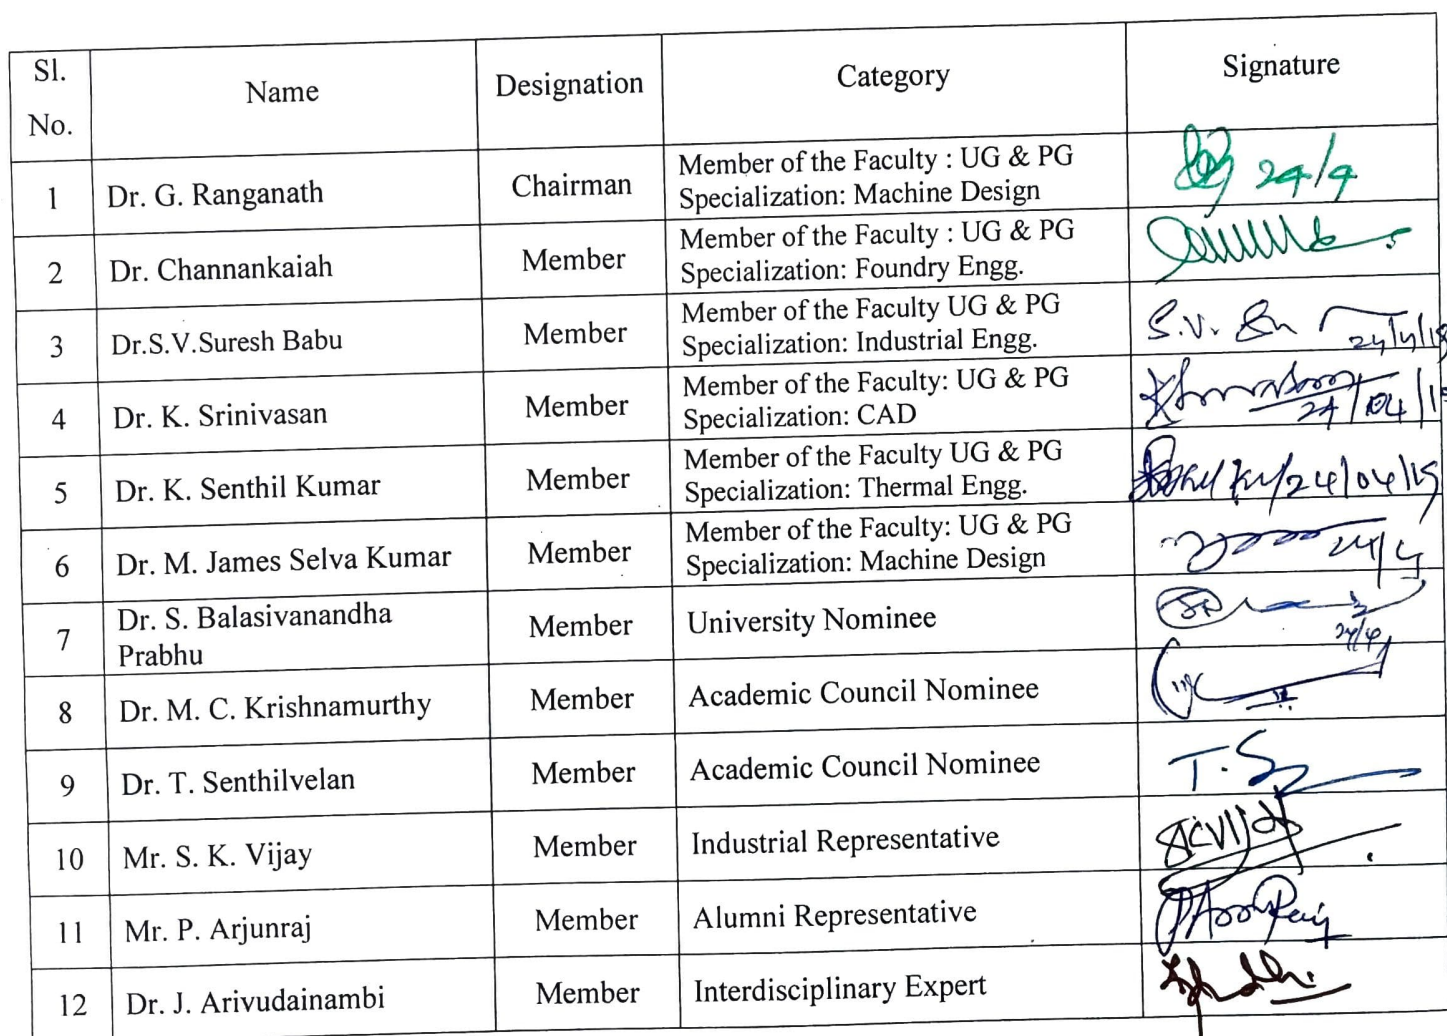 Sl.
No.
Name
Designation
Category
Signature
1
Dr. G. Ranganath
Chairman
Member of the Faculty : UG & PG
Specialization: Machine Design
24/4
2
Dr. Channankaiah
Member
Member of the Faculty : UG & PG
Specialization: Foundry Engg.
3
Dr.S.V.Suresh Babu
Member
Member of the Faculty UG & PG
Specialization: Industrial Engg.
S.V.
4
Dr. K. Srinivasan
Member
Member of the Faculty: UG & PG
Specialization: CAD
24/04/
5
Dr. K. Senthil Kumar
Member
Member of the Faculty UG & PG
Specialization: Thermal Engg.
24/04/15
6
Dr. M. James Selva Kumar
Member
Member of the Faculty: UG & PG
Specialization: Machine Design
24/4
7
Dr. S. Balasivanandha
Prabhu
Member
University Nominee
24/4
8
Dr. M. C. Krishnamurthy
Member
Academic Council Nominee
9
Dr. T. Senthilvelan
Member
Academic Council Nominee
T.S
10
Mr. S. K. Vijay
Member
Industrial Representative
11
Mr. P. Arjunraj
Member
Alumni Representative
12
Dr. J. Arivudainambi
Member
Interdisciplinary Expert